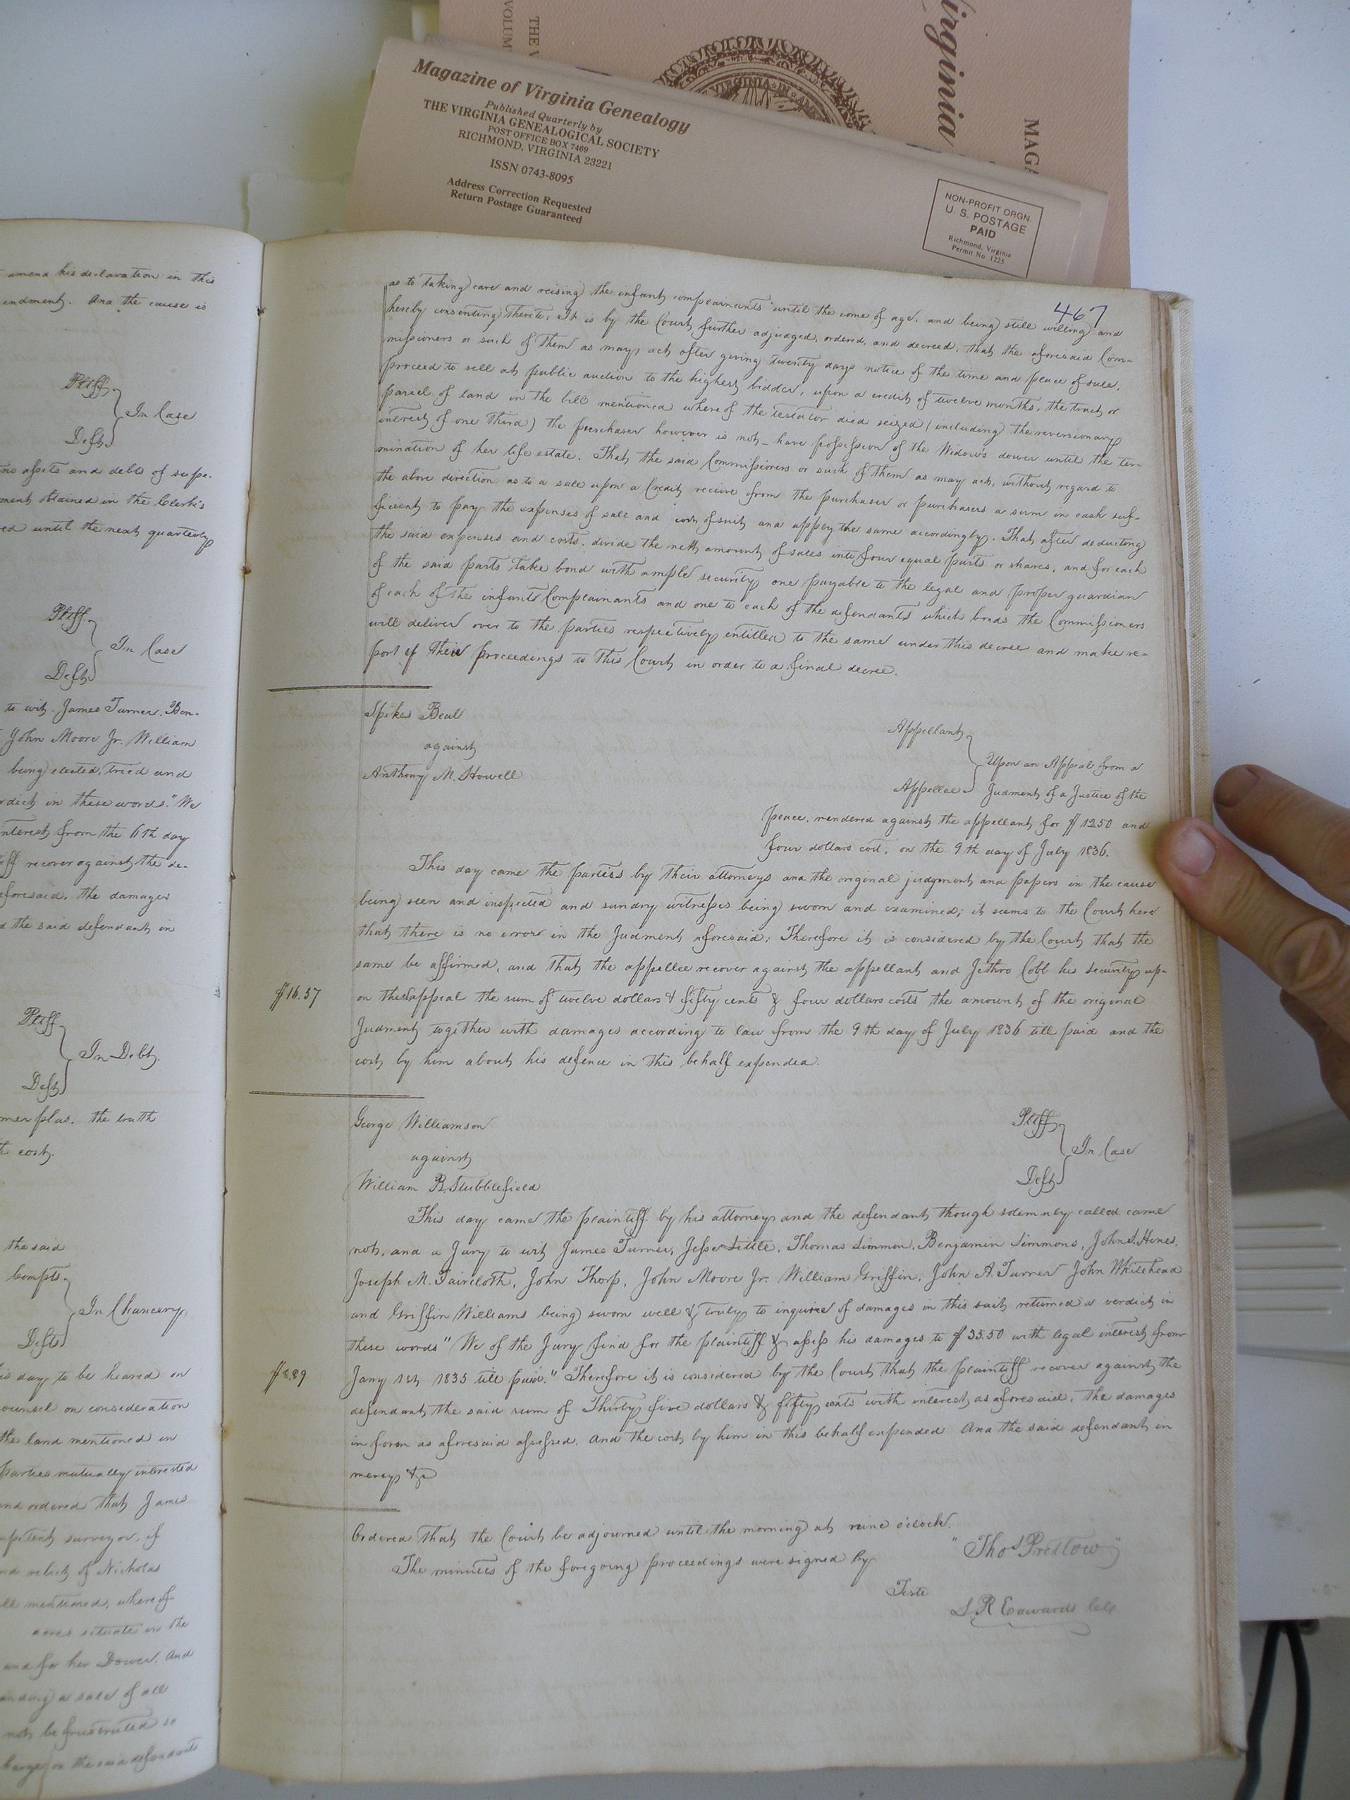 THE V
VOLUM
Virginia
MAGA
VIRGINIA
Magazine of Virginia Genealogy
Published Quarterly by
THE VIRGINIA GENEALOGICAL SOCIETY
POST OFFICE BOX 7469
RICHMOND, VIRGINIA 23221
ISSN 0743-8095
Address Correction Requested
Return Postage Guaranteed
NON-PROFIT ORGN.
U. S. POSTAGE
PAID
Richmond, Virginia
Permit No 1225
amend his declaration in this
endment. And the cause is
Ptff
In Case
Deft
assets and debts of suspe-
ment obtained in the Clerk's
ed until the next quarterly
Ptff
In Case
Deft
to wit. James Turner, Ben-
John Moore Jr. William
being elected, tried and
rdict in these words." We
nterest from the 6th day
ff recover against the de-
aforesaid, the damages
d the said defendant in
Ptff
In Debt
Deft
the truth
cost.
the said
Compts
In Chancery
Defts
is day to be heared on
ounsel on consideration
the land mentioned in
Parties mutually interested
and ordered that James
surveyor, of
nd relict of Nicholas
ll mentioned, where of
acres situate in the
and for her Dower. And
a sale of all
not be frustrated so
467
as to taking care and raising the infant complainants until the come of age, and being still willing and
hereby consenting thereto; It is by the Court further adjudged, ordered, and decreed, that the aforesaid Com-
missioners or such of them as may act after giving twenty days notice of the time and place of sale,
proceed to sell at public auction to the highest bidder, upon a credit of twelve months, the tract or
parcel of land in the bill mentioned where of the testator died seized (including the reversionary
interest of one third) the purchaser however is not have possession of the Widow's dower until the ter-
mination of her life estate. That the said Commissioners or such of them as may act, without regard to
the above direction as to a sale upon a Credit receive from the purchaser or purchasers a sum in cash suf-
ficient to pay the expenses of sale and cost of suit and apply the same accordingly. That after deducting
the said expenses and costs, divide the nett amount of sales into four equal parts or shares, and for each
of the said parts take bond with ample security one payable to the legal and proper guardian
of each of the infants Complainants and one to each of the defendants which bonds the Commissioners
will deliver over to the parties respectively entitled to the same under this decree and make re-
port of their proceedings to this Court in order to a final decree.
Spikes Beal
Appellant
against
Upon an Appeal from a
Anthony M. Howell
Appellee
Judment of a Justice of the
peace, rendered against the appellant for $ 12.50 and
four dollars cost, on the 9th day of July 1836.
This day came the parties by their attorneys and the original judgment and papers in the cause
being seen and inspected and sundry witnesses being sworn and examined; it seems to the Court here
that there is no error in the Judment aforesaid; Therefore it is considered by the Court that the
same be affirmed, and that the appellee recover against the appellant and Jethro Cobb his security up-
$16.57
on the appeal the sum of twelve dollars & fifty cents & four dollars costs the amount of the original
Judment together with damages according to law from the 9th day of July 1836 till paid and the
cost by him about his defence in this behalf expended.
George Williamson
Ptff
against
In Case
William B. Stubblefield
Deft
This day came the plaintiff by his attorney and the defendant though solemnly called came
not, and a Jury to wit James Turner, Jesse Little, Thomas Simmon, Benjamin Simmons, John S. Hines,
Joseph M. Faircloth, John Thorp, John Moore Jr. William Griffin, John A. Turner John Whitehead
and Griffin Williams being sworn well & truly to inquire of damages in this suit, returned a verdict in
these words "We of the Jury find for the plaintiff & assess his damages to $ 35.50 with legal interest from
$8.89
Jany 1st 1835 till paid." Therefore it is considered by the Court that the plaintiff recover against the
defendant the said sum of Thirty five dollars & fifty cents with interest as aforesaid, the damages
in form as aforesaid assessed, and the cost by him in this behalf expended And the said defendant in
mercy &c
Ordered that the Court be adjourned until the morning at nine o'clock.
The minutes of the foregoing proceedings were signed by
"Thos Pretlow"
Teste
L R Edwards Clk